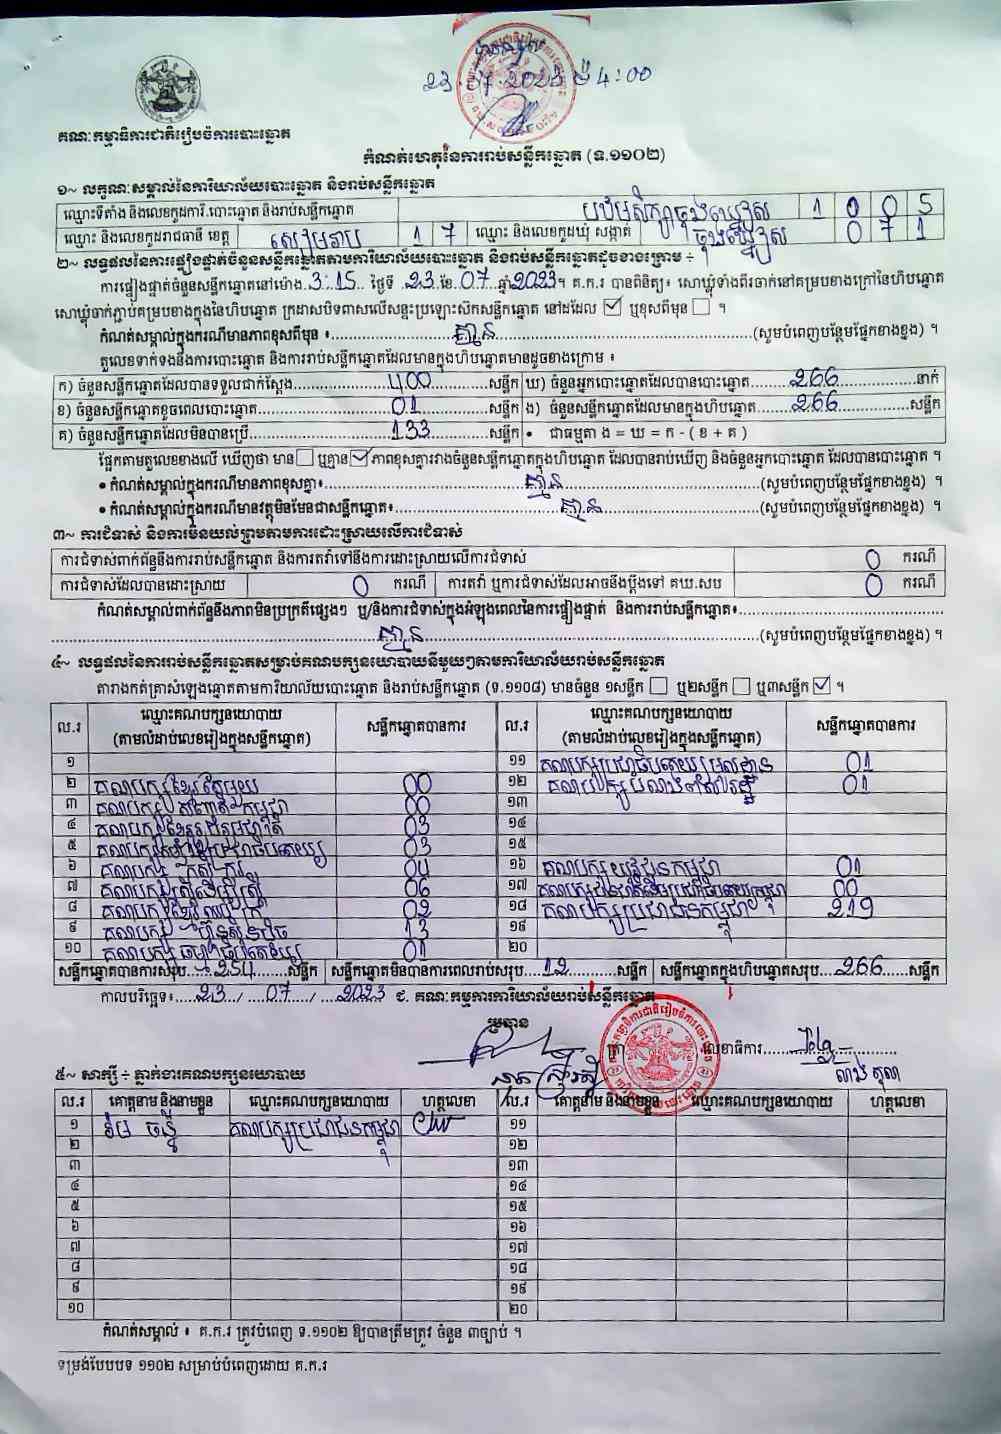 23.07.2023 ម៉ 4:00
គណៈកម្មាធិការជាតិរៀបចំការបោះឆ្នោត
កំណត់ហេតុនៃការរាប់សន្លឹកឆ្នោត (ទ.១១០២)
១~ លក្ខណៈសម្គាល់នៃការិយាល័យបោះឆ្នោត និងរាប់សន្លឹកឆ្នោត
ឈ្មោះទីតាំង និងលេខកូដការិ.បោះឆ្នោត និងរាប់សន្លឹកឆ្នោត បឋមសិក្សាចុងឃ្នៀស 1 0 0 5
ឈ្មោះ និងលេខកូដរាជធានី ខេត្ត សៀមរាប 1 7 ឈ្មោះ និងលេខកូដឃុំ សង្កាត់ ចុងឃ្នៀស 0 7 1
២~ លទ្ធផលនៃការផ្ទៀងផ្ទាត់ចំនួនសន្លឹកឆ្នោតតាមការិយាល័យបោះឆ្នោត និងរាប់សន្លឹកឆ្នោតដូចខាងក្រោម ÷
ការផ្ទៀងផ្ទាត់ចំនួនសន្លឹកឆ្នោតនៅម៉ោង.3:15..ថ្ងៃទី..23.ខែ.07..ឆ្នាំ2023។ គ.ក.រ បានពិនិត្យ៖ សោឃ្លុំទាំងពីរចាក់នៅគម្របខាងក្រៅនៃហិបឆ្នោត
សោឃ្លុំចាក់ភ្ជាប់គម្របខាងក្នុងនៃហិបឆ្នោត ក្រដាសបិទពាសលើសន្ទះប្រឡោះស៊កសន្លឹកឆ្នោត នៅដដែល ☑ ឬខុសពីមុន ☐ ។
កំណត់សម្គាល់ក្នុងករណីមានភាពខុសពីមុន ៖ គ្មាន (សូមបំពេញបន្ថែមផ្នែកខាងខ្នង) ។
តួលេខទាក់ទងនឹងការបោះឆ្នោត និងការរាប់សន្លឹកឆ្នោតដែលមានក្នុងហិបឆ្នោតមានដូចខាងក្រោម ៖
ក) ចំនួនសន្លឹកឆ្នោតដែលបានទទួលជាក់ស្តែង 400 សន្លឹក ឃ) ចំនួនអ្នកបោះឆ្នោតដែលបានបោះឆ្នោត 266 នាក់
ខ) ចំនួនសន្លឹកឆ្នោតខូចពេលបោះឆ្នោត 01 សន្លឹក ង) ចំនួនសន្លឹកឆ្នោតដែលមានក្នុងហិបឆ្នោត 266 សន្លឹក
គ) ចំនួនសន្លឹកឆ្នោតដែលមិនបានប្រើ 133 សន្លឹក • ជាធម្មតា ង = ឃ = ក - ( ខ + គ )
ផ្អែកតាមតួលេខខាងលើ ឃើញថា មាន ☐ ឬគ្មាន ☑ ភាពខុសគ្នារវាងចំនួនសន្លឹកឆ្នោតក្នុងហិបឆ្នោត ដែលបានរាប់ឃើញ និងចំនួនអ្នកបោះឆ្នោត ដែលបានបោះឆ្នោត ។
• កំណត់សម្គាល់ក្នុងករណីមានភាពខុសគ្នា៖ គ្មាន (សូមបំពេញបន្ថែមផ្នែកខាងខ្នង) ។
• កំណត់សម្គាល់ក្នុងករណីមានវត្ថុមិនមែនជាសន្លឹកឆ្នោត៖ គ្មាន (សូមបំពេញបន្ថែមផ្នែកខាងខ្នង) ។
៣~ ការជំទាស់ និងការមិនយល់ព្រមតាមការដោះស្រាយលើការជំទាស់
ការជំទាស់ពាក់ព័ន្ធនឹងការរាប់សន្លឹកឆ្នោត និងការតវ៉ាទៅនឹងការដោះស្រាយលើការជំទាស់ 0 ករណី
ការជំទាស់ដែលបានដោះស្រាយ 0 ករណី ការតវ៉ា ឬការជំទាស់ដែលអាចនឹងប្តឹងទៅ គឃ.សប 0 ករណី
កំណត់សម្គាល់ពាក់ព័ន្ធនឹងភាពមិនប្រក្រតីផ្សេងៗ ឬ/និងការជំទាស់ក្នុងអំឡុងពេលនៃការផ្ទៀងផ្ទាត់ និងការរាប់សន្លឹកឆ្នោត៖
គ្មាន (សូមបំពេញបន្ថែមផ្នែកខាងខ្នង) ។
៤~ លទ្ធផលនៃការរាប់សន្លឹកឆ្នោតសម្រាប់គណបក្សនយោបាយនីមួយៗតាមការិយាល័យរាប់សន្លឹកឆ្នោត
តារាងកត់ត្រាសំឡេងឆ្នោតតាមការិយាល័យបោះឆ្នោត និងរាប់សន្លឹកឆ្នោត (ទ.១១០៨) មានចំនួន ១សន្លឹក ☐ ឬ២សន្លឹក ☐ ឬ៣សន្លឹក ☑ ។
ល.រ ឈ្មោះគណបក្សនយោបាយ (តាមលំដាប់លេខរៀងក្នុងសន្លឹកឆ្នោត) សន្លឹកឆ្នោតបានការ ល.រ ឈ្មោះគណបក្សនយោបាយ (តាមលំដាប់លេខរៀងក្នុងសន្លឹកឆ្នោត) សន្លឹកឆ្នោតបានការ
១ ១១ គណបក្សប្រជាធិបតេយ្យមូលដ្ឋាន 01
២ គណបក្សខ្មែររួបរួម 00 ១២ គណបក្ស 01
៣ គណបក្ស កម្ពុជា 00 ១៣
៤ គណបក្សខ្មែររួបរួមជាតិ 03 ១៤
៥ គណបក្សសំបុកឃ្មុំប្រជាធិបតេយ្យ 03 ១៥
៦ គណបក្ស 04 ១៦ គណបក្សយុវជនកម្ពុជា 01
៧ គណបក្សស្ត្រីដើម្បីស្ត្រី 06 ១៧ 00
៨ គណបក្សខ្មែរ 02 ១៨ គណបក្សប្រជាជនកម្ពុជា 219
៩ គណបក្ស ហ៊្វុនស៊ិនប៉ិច 13 ១៩
១០ គណបក្ស 01 ២០
សន្លឹកឆ្នោតបានការសរុប 254 សន្លឹក សន្លឹកឆ្នោតមិនបានការពេលរាប់សរុប 12 សន្លឹក សន្លឹកឆ្នោតក្នុងហិបឆ្នោតសរុប 266 សន្លឹក
កាលបរិច្ឆេទ៖ 23 / 07 / 2023 ជ. គណៈកម្មការការិយាល័យរាប់សន្លឹកឆ្នោត
ប្រធាន
ត្រា លេខាធិការ
៥~ សាក្សី ÷ ភ្នាក់ងារគណបក្សនយោបាយ
ល.រ គោត្តនាម និងនាមខ្លួន ឈ្មោះគណបក្សនយោបាយ ហត្ថលេខា ល.រ គោត្តនាម និងនាមខ្លួន ឈ្មោះគណបក្សនយោបាយ ហត្ថលេខា
១ គណបក្សប្រជាជនកម្ពុជា ១១
២ ១២
៣ ១៣
៤ ១៤
៥ ១៥
៦ ១៦
៧ ១៧
៨ ១៨
៩ ១៩
១០ ២០
កំណត់សម្គាល់ ៖ គ.ក.រ ត្រូវបំពេញ ទ.១១០២ ឱ្យបានត្រឹមត្រូវ ចំនួន ៣ច្បាប់ ។
ទម្រង់បែបបទ ១១០២ សម្រាប់បំពេញដោយ គ.ក.រ